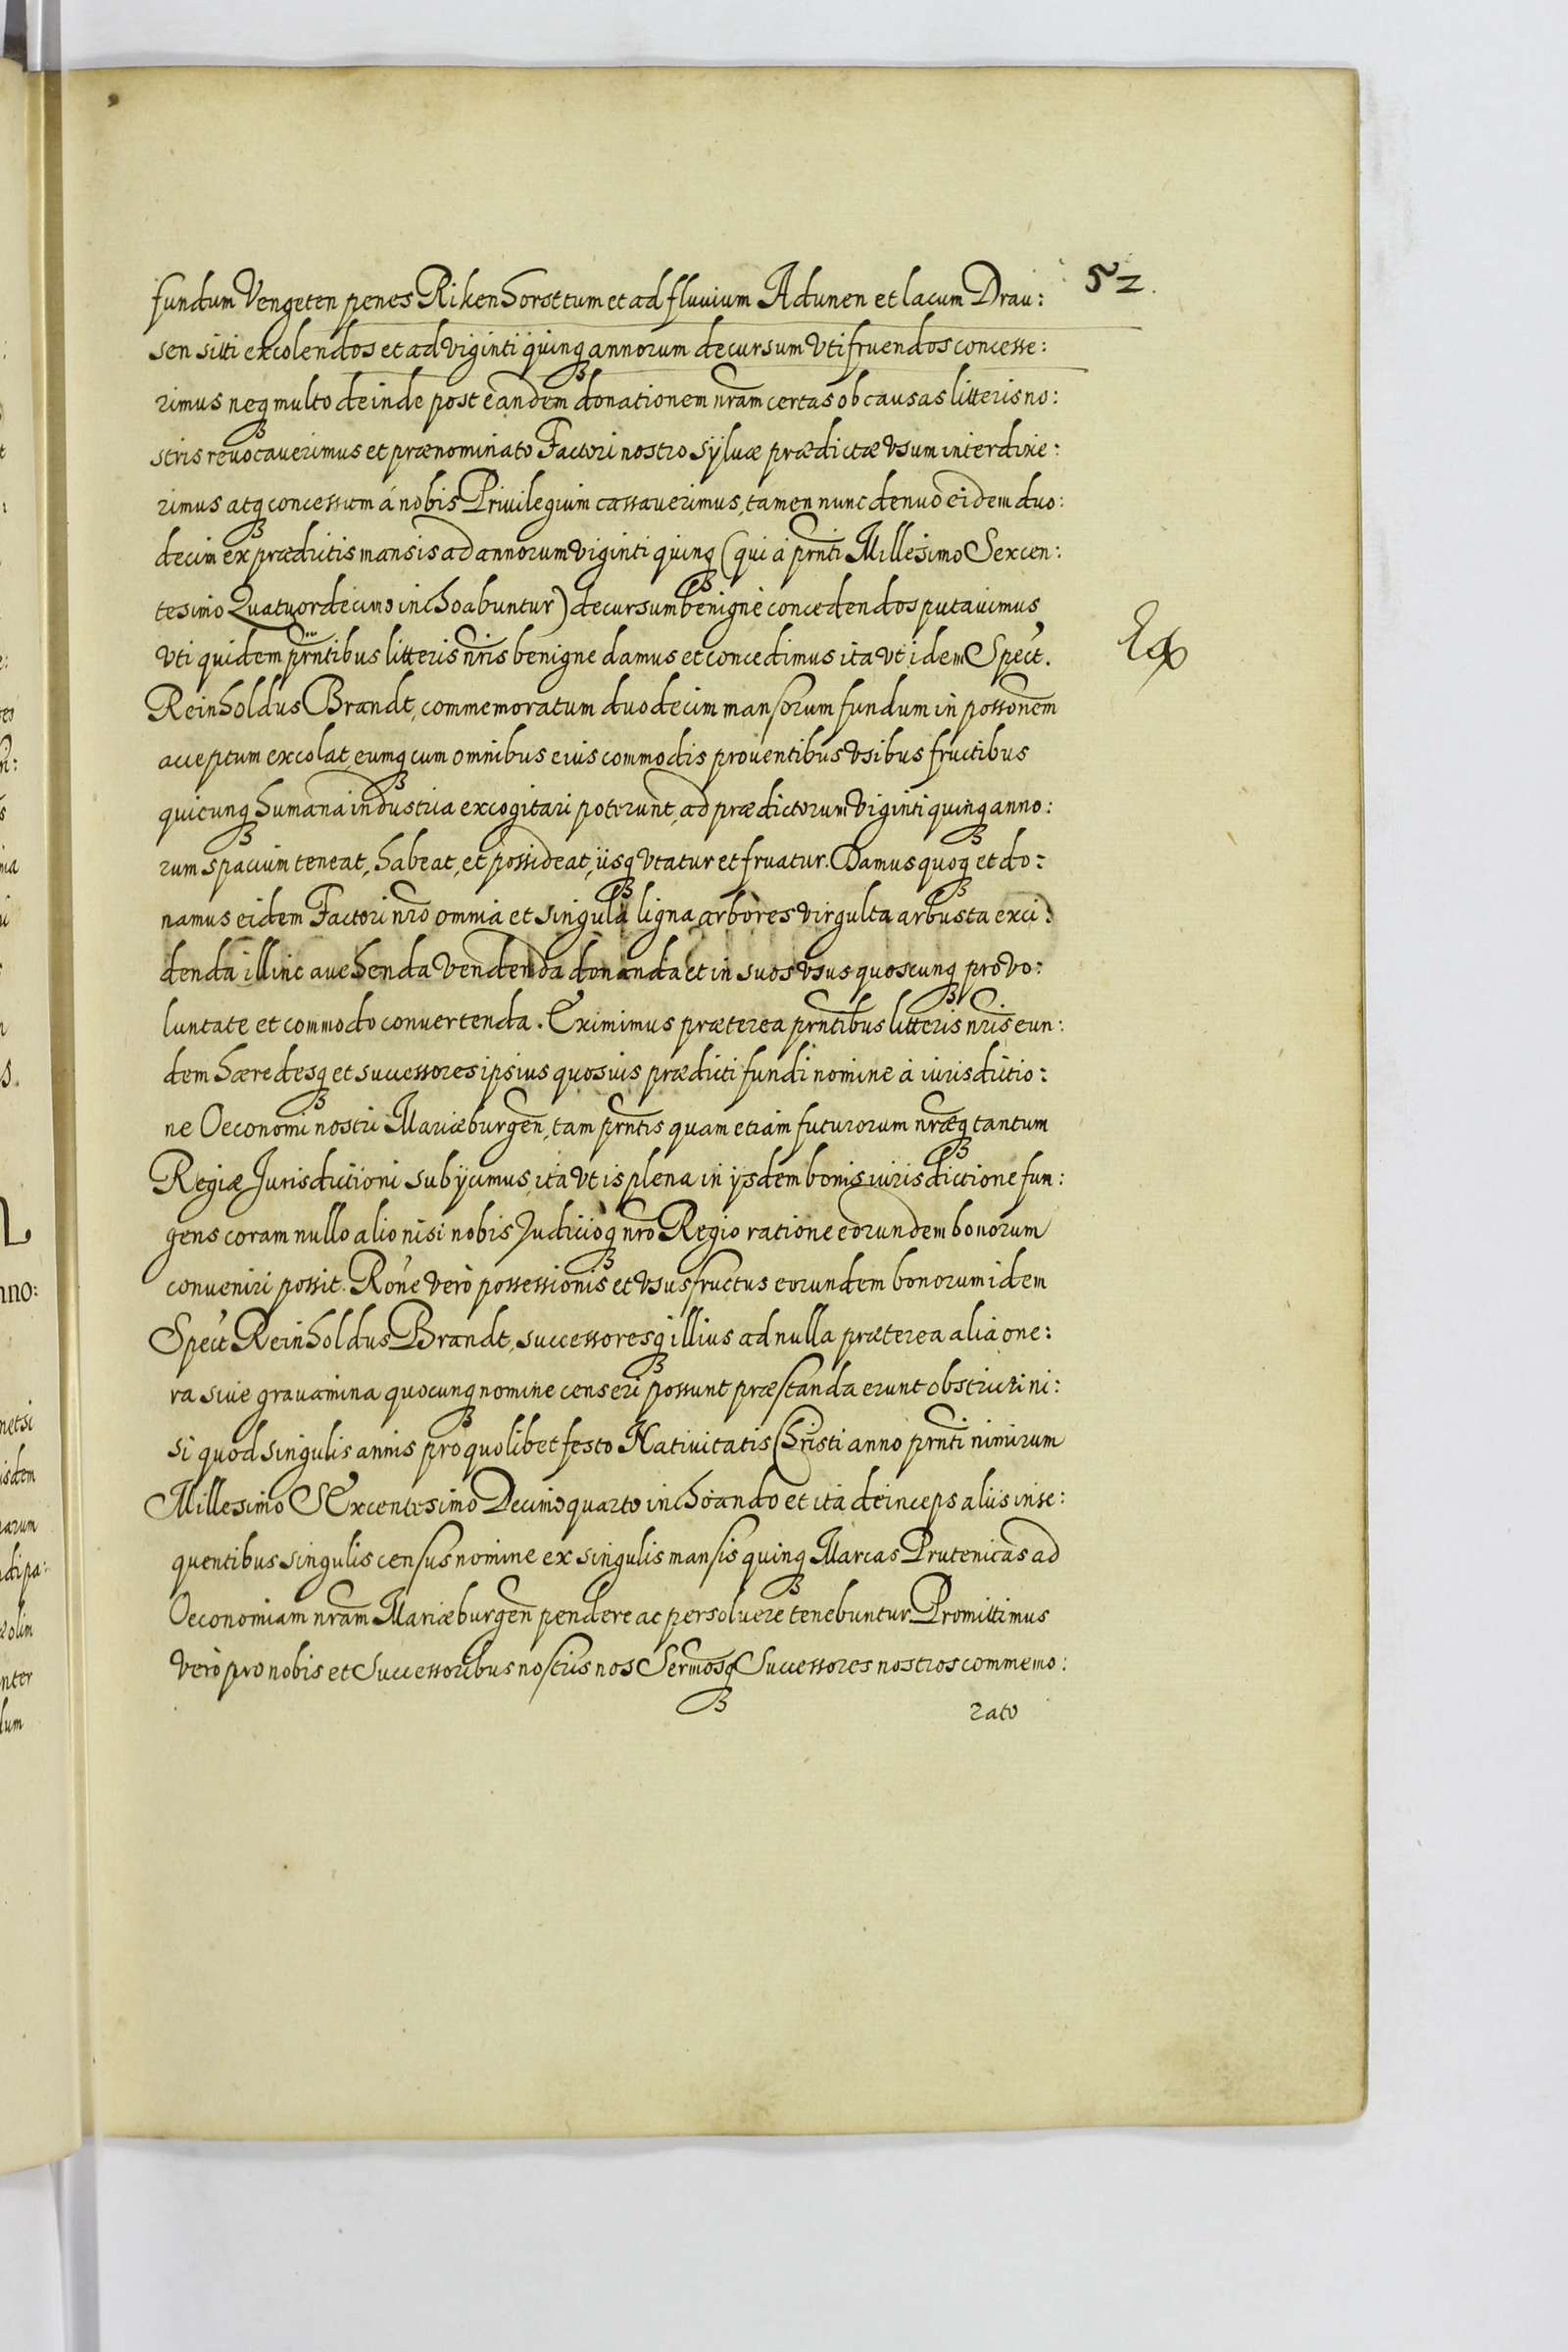 52.
fundum Vengeten penes Rikenhorst tum et ad fluuium Adunen et lacum Drau:
sen sitti excolendos et ad viginti quinq annorum decursum vti fruendos concesse:
rimus neq multo deinde post eandem donationem nram certas ob causas litteris no:
stris reuocauerimus et prænominato Factori nostro syluæ prædictæ vsum interdixe:
rimus atq concessum á nobis Priuilegium cassauerimus, tamen nunc denuo eidem duo:
decim ex prædictis mansis ad annorum viginti quinq (qui á prnti Millesimo Sexcen:
tesimo Quatuordecimo inchoabuntur) decursum benignè concedendos putauimus
vti quidem prntibus litteris nris benigne damus et concedimus ita vt idem Spect.
Reinholdus Brandt, commemoratum duodecim mansorum fundum in possonem
acceptum excolat, eumq cum omnibus eius commodis prouentibus vsibus fructibus
quicunq humana industria excogitari poterunt, ad prædictorum viginti quinq anno:
rum spacium teneat, habeat, et possideat, iisq vtatur et fruatur. Damus quoq et do:
namus eidem Factori nro omnia et singula ligna arbores virgulta arbusta exci:
denda illinc auehenda vendenda donanda et in suos vsus quoscunq pro vo:
luntate et commodo conuertenda. Eximimus præterea prntibus litteris nris eun:
dem hæredesq et successores ipsius quosuis prædicti fundi nomine á iurisdictio:
ne Oeconomi nostri Mariæburgen, tam prntis quam etiam futurorum nræq tantum
Regiæ Jurisdictioni subijcimus, ita vt is plena in ijsdem bonis iurisdictione fun:
gens coram nullo alio nisi nobis Judicioq nro Regio ratione eorundem bonorum
conueniri possit. Rone verò possessionis et vsusfructus eorundem bonorum idem
Spect Reinholdus Brandt, successoresq illius ad nulla præterea alia one:
ra siue grauamina quocunq nomine censeri possunt præstanda erunt obstricti ni:
si quod singulis annis pro quolibet festo Natiuitatis Christi anno prnti nimirum
Millesimo SExcentesimo Decimoquarto inchoando et ita deinceps aliis inse:
quentibus singulis census nomine ex singulis mansis quinq Marcas Prutenicas ad
Oeconomiam nram Mariæburgen pendere ac persoluere tenebuntur. Promittimus
verò pro nobis et Successoribus nostris nos Sermosq Successores nostros commemo:
rato